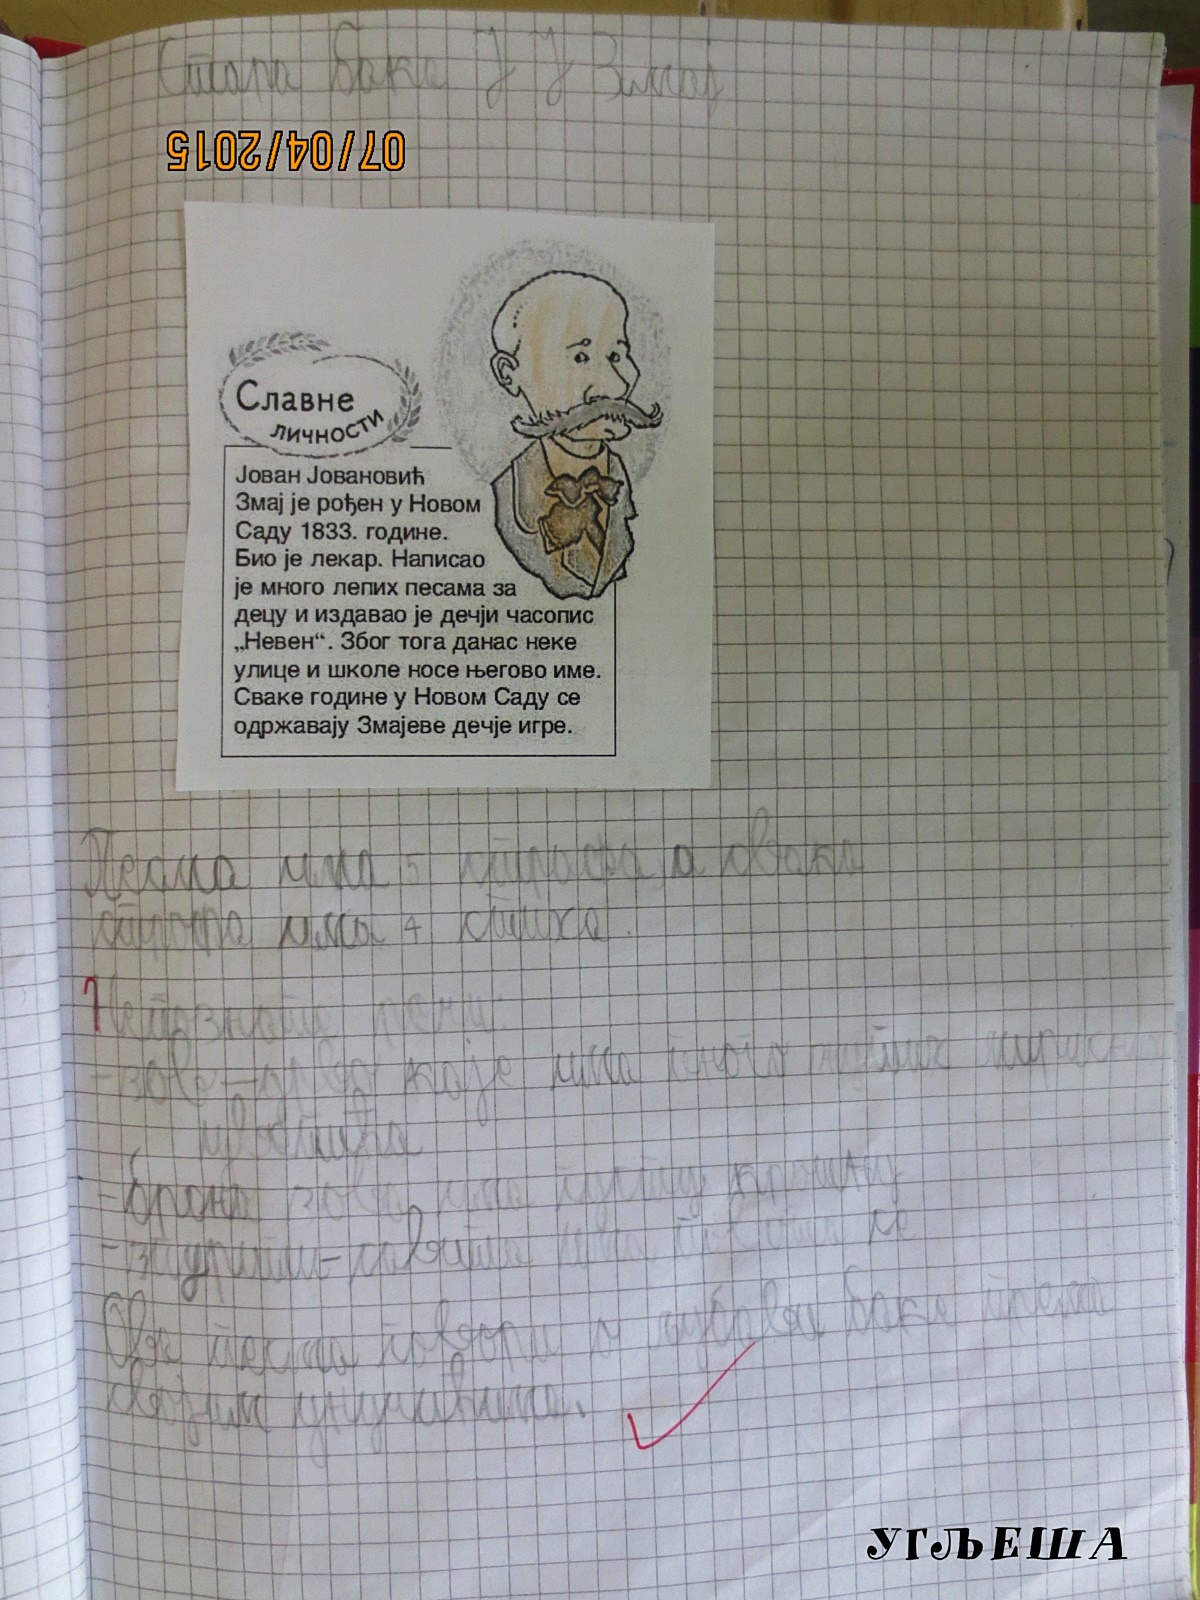 Стара бака Ј Ј Змај
07/04/2015
Славне
личности
Јован Јовановић
Змај је рођен у Новом
Саду 1833. године.
Био је лекар. Написао
је много лепих песама за
децу и издавао је дечји часопис
„Невен“. Због тога данас неке
улице и школе носе његово име.
Сваке године у Новом Саду се
одржавају Змајеве дечје игре.
Песма има 5 строфа, а свака
строфа има 4 стиха.
Непознате речи:
-зова-дрво које има много
цветића
-брсна зова има густу крошњу
Ова песма говори о љубави баке према
својим унучићима.
УГЉЕША